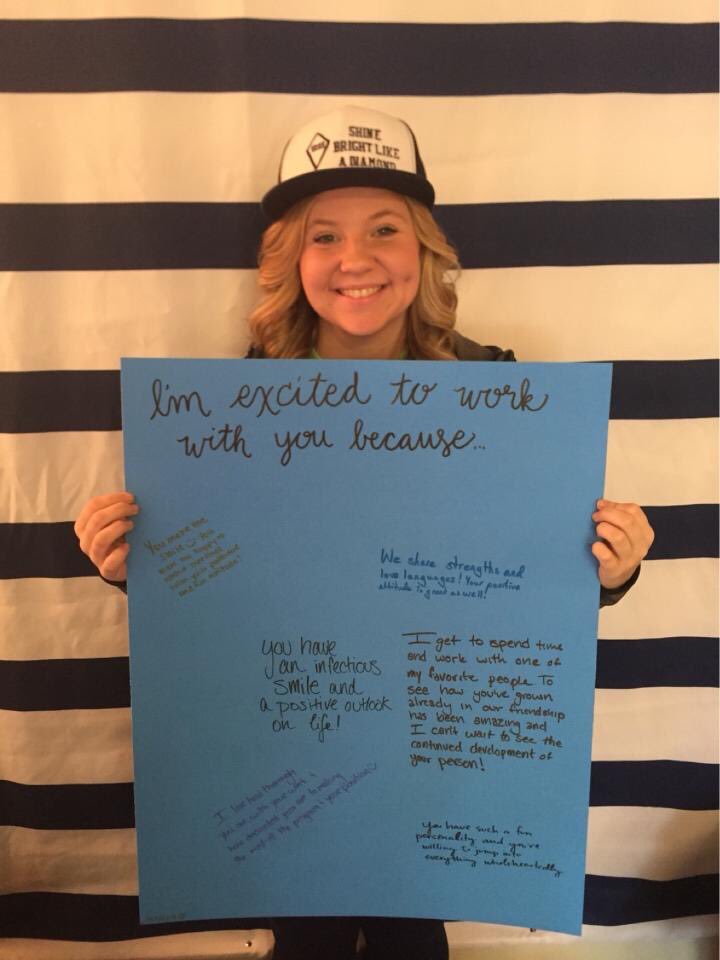 SHINE
BRIGHT LIKE
A DIAMOND
I'm excited to work
with you because...
You make me
smile You
We share strengths and
love languages! Your positive
attitude is great as well!
you have
an infectious
smile and
a positive outlook
on life!
I get to spend time
and work with one of
my favorite people. To
see how you've grown
already in our friendship
has been amazing and
I can't wait to see the
continued development of
your person!
I love how thorough
you are with your work &
how dedicated you are to making
the most of the program & your position
You have such a fun
personality and you're
willing to jump into
everything wholeheartedly